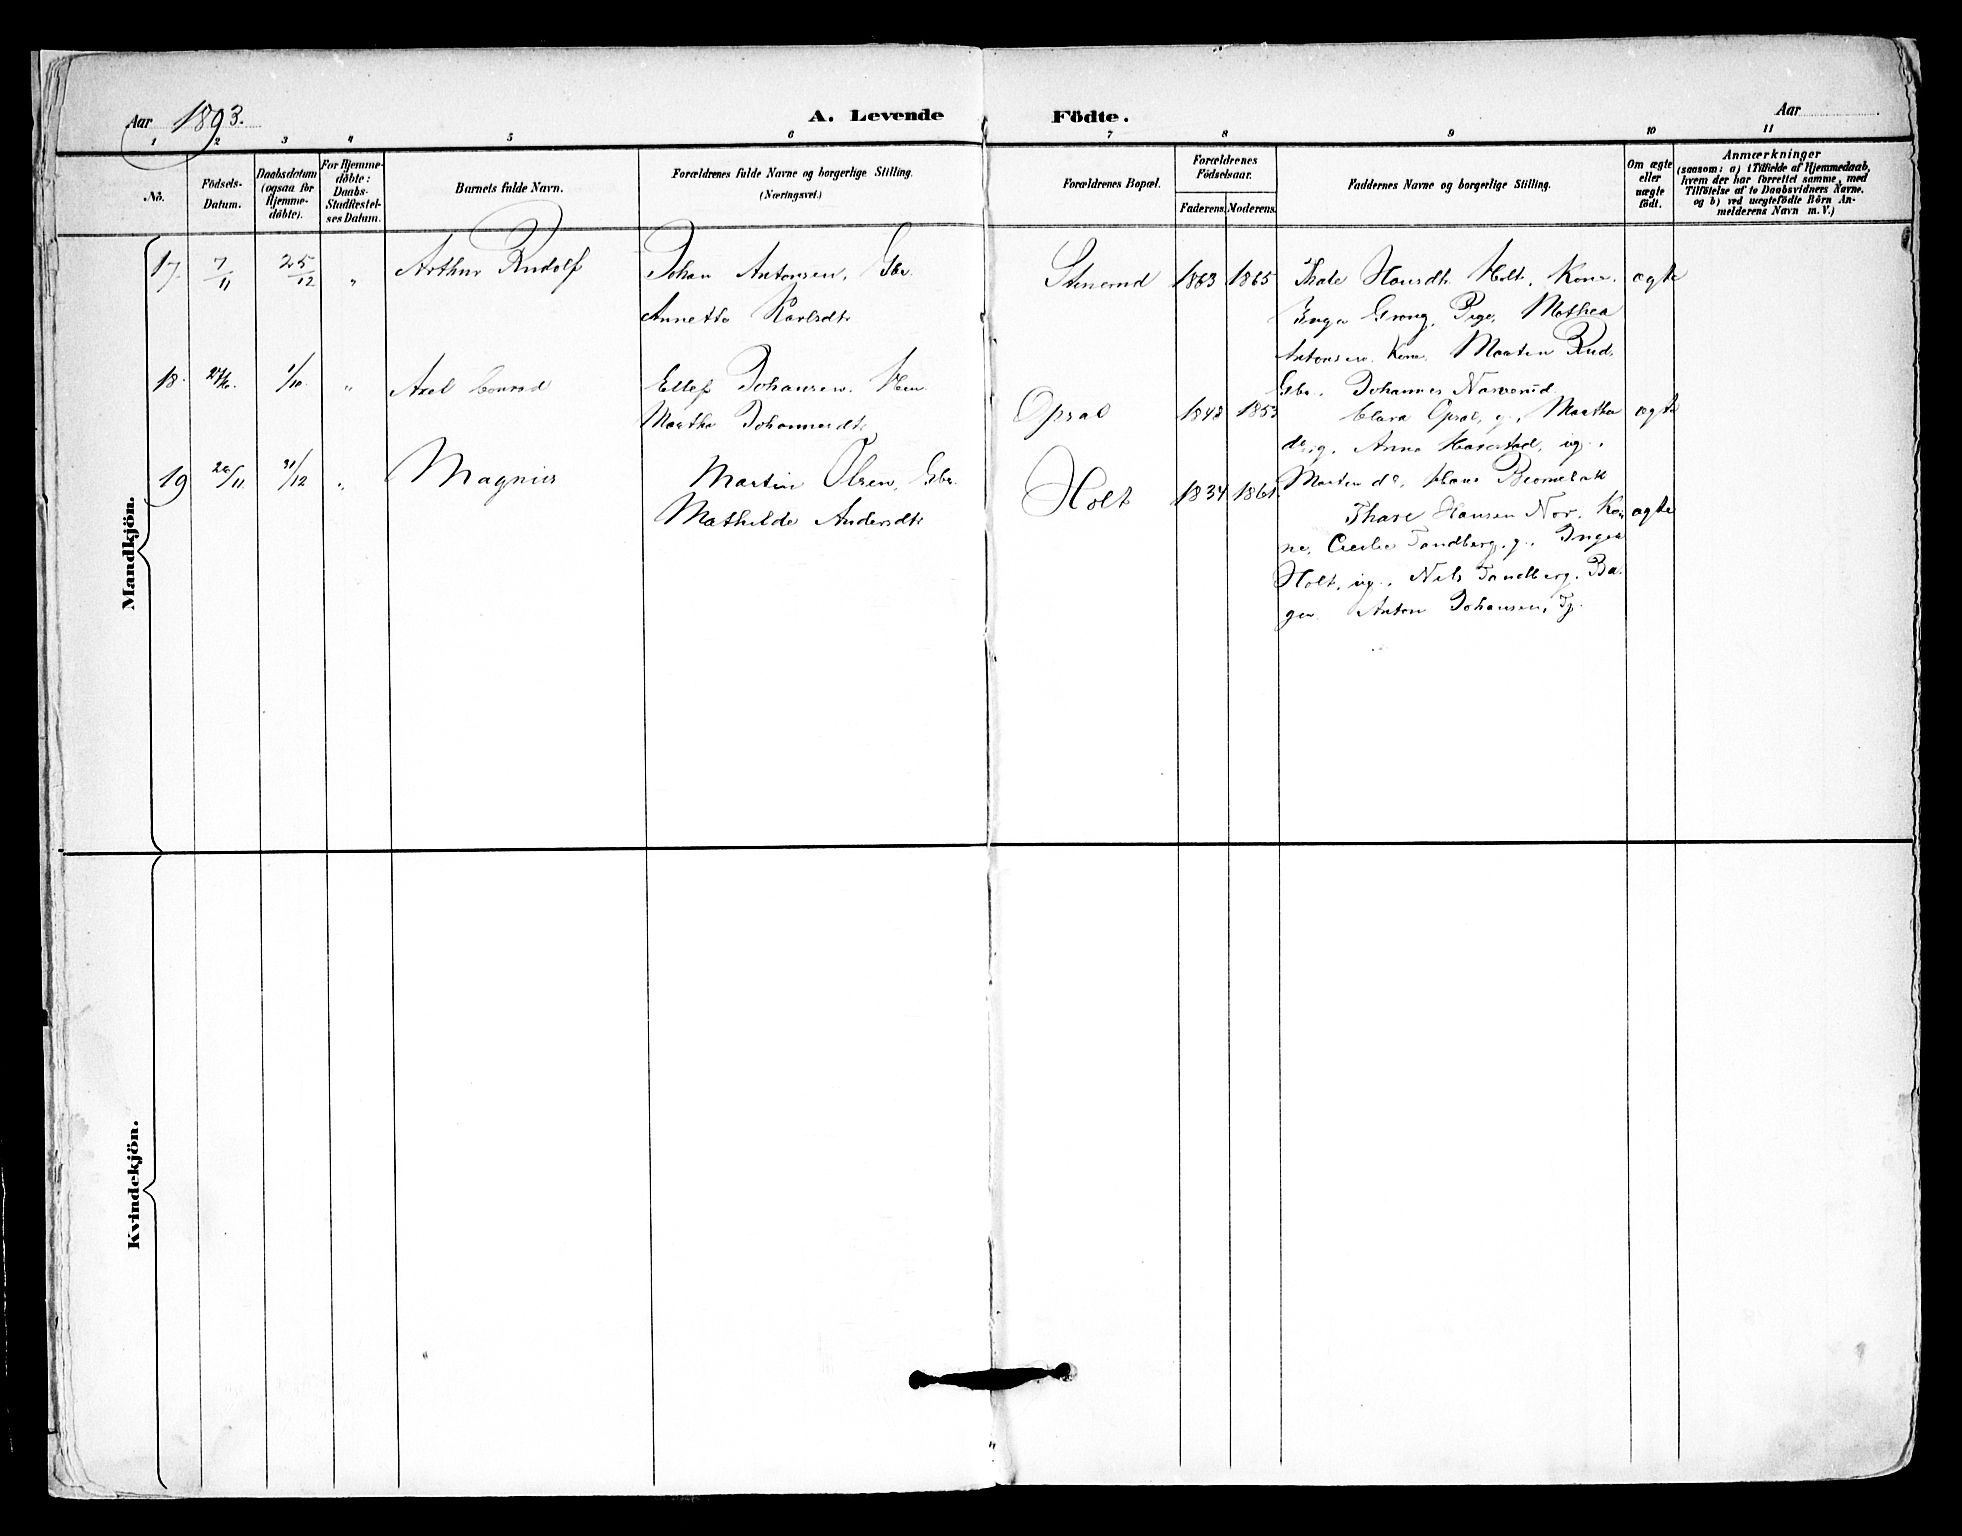 Aar 1893.
A. Levende Födte.
Aar
1 2 3 4 5 6 7 8 9 10 11
No.
Födsels-Datum.
Daabsdatum (ogsaa for Hjemme-döbte).
For Hjemme-döbte: Daabs-Stadfæstel-ses Datum.
Barnets fulde Navn.
Forældrenes fulde Navne og borgerlige Stilling.
(Næringsvei.)
Forældrenes Bopæl.
Forældrenes Födselsaar.
Faderens. Moderens.
Faddernes Navne og borgerlige Stilling.
Om ægte eller uægte födt.
Anmærkninger
(saasom: a) i Tilfælde af Hjemmedaab,
hvem der har forrettet samme, med
Tilföielse af to Daabsvidners Navne.
og b) ved uægtefödte Börn An-
melderens Navn m. V.)
Mandkjön.
17. 7/11 25/12 " Arthur Rudolf Johan Antonsen, Gbr. Stenerud 1863 1865 Thale Hansdt. Holt, Kone. ægte
Annette Karlsdt. Inga Grong, Pige, Mathea
Antonsen, Kone, Martin Rud,
Gbr. Johannes Narverud
18. " 1/10. Axel Conrad Ellef Johansen, Opsal 1848 1853 Clara Opsal, g., Martha ægte
Martha Johannesdt. Anna ug.,
Martin do, Hans
19 /11 31/12 " Magnus Martin Olsen, Gbr. Holt 1834 1861 Hansen Nor, Ko- ægte
Mathilde Andersdt. ne, Cecilie Sandberg, g., Inger
Holt, ug., Nils Sandberg, Ba-
ger Anton Johansen, Tj.
Kvindekjön.